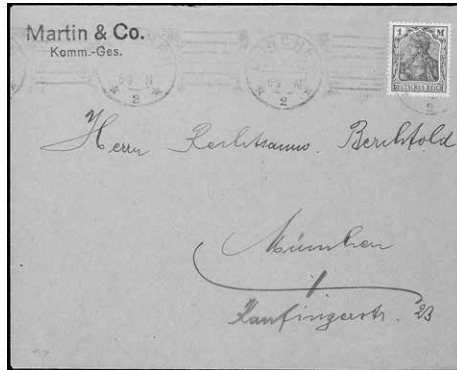 Martin & Co.
Komm.-Ges.
MÜNCHEN
6-9 N
2
6-9 N
2
2
1 M
DEUTSCHES REICH
Herrn Rechtsanw. Berchtold
München
Kaufingerstr. 23